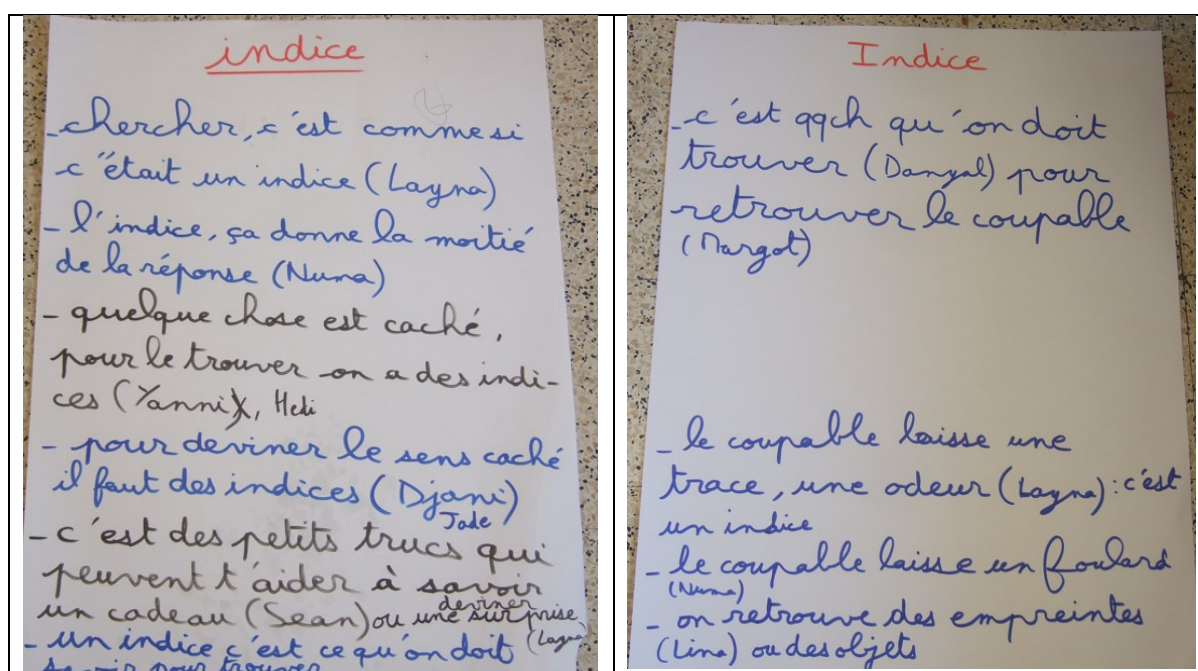 indice
- chercher, c'est comme si
c'était un indice (Layna)
- l'indice, ça donne la moitié
de la réponse (Numa)
- quelque chose est caché,
pour le trouver on a des indi-
ces (Yanni), Hedi
- pour deviner le sens caché
il faut des indices (Djani)
Jade
- c'est des petits trucs qui
peuvent t'aider à savoir
deviner
un cadeau (Sean) ou une surprise
(Layna)
- un indice c'est ce qu'on doit
savoir pour trouver
Indice
- c'est qqch qu'on doit
trouver (Danyal) pour
retrouver le coupable
(Margot)
- le coupable laisse une
trace, une odeur (Layna) : c'est
un indice
- le coupable laisse un foulard
(Numa)
- on retrouve des empreintes
(Lina) ou des objets